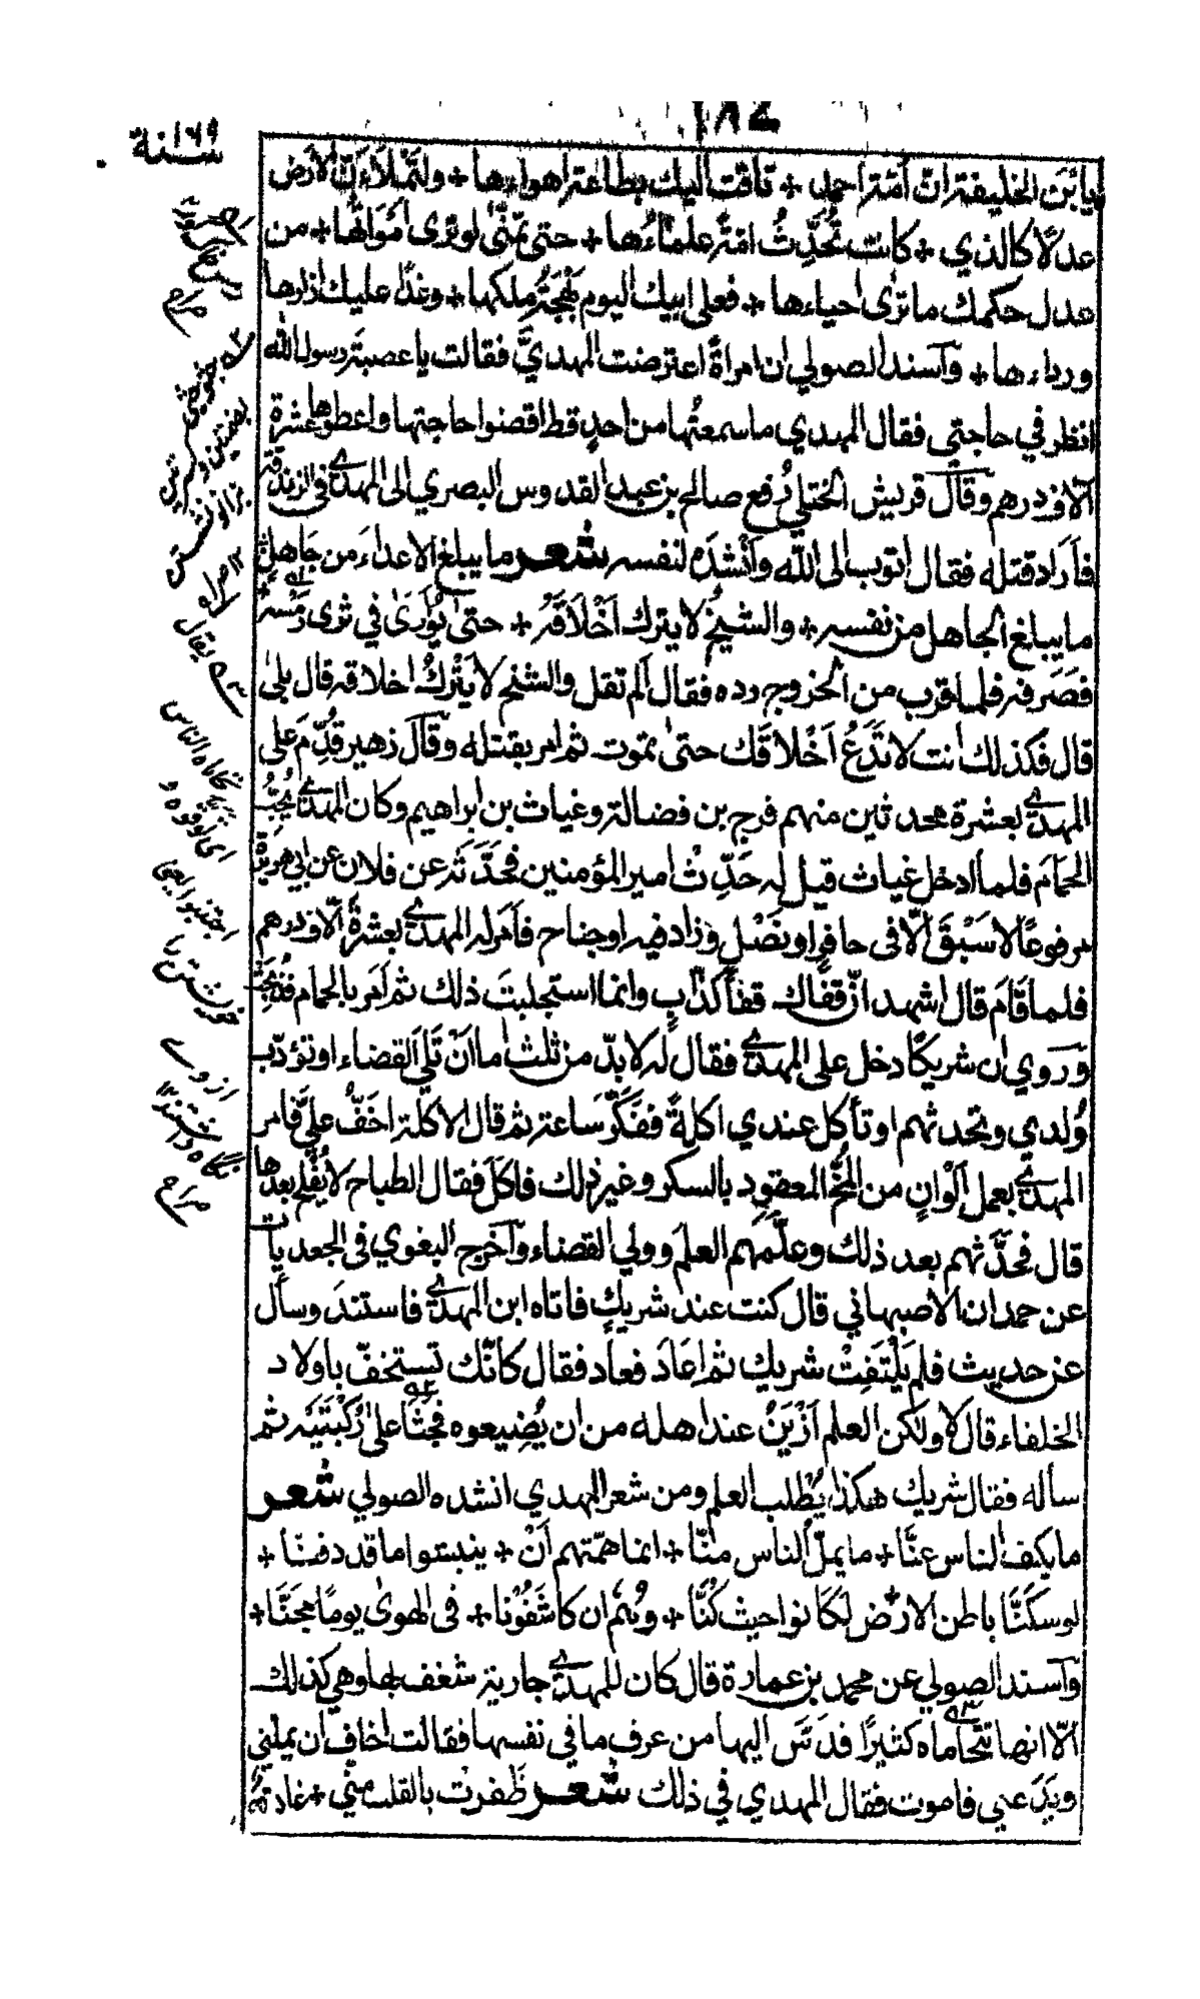 ١٨٤
سنة ١٦٩
يا ابن الخليفة ان امة احمد + تاقت اليك بطاعة اهواءها + ولتملأن الارض
عدلا كالذي + كانت تُحدِّثُ امةً علماءُها + حتى تمنّى لو ترى امواتها + من
عدل حكمك ما ترى احياءها + فعلى ابيك اليوم بهجة ملكها + وغدًا عليك ازارها
ورداءها + وآسند الصولي ان امراةً اعترضت المهديَّ فقالت يا عصبة رسول الله
انظر في حاجتي فقال المهدي ما سمعتُها من احدٍ قط اقضوا حاجتها واعطوها عشرة
آلاف درهم وقال قريش الختلي رُفع صالح بن عبد القدوس البصري الى المهدي في الزندقة
فأراد قتله فقال اتوب الى الله وأنشده لنفسه شعر ما يبلغ الاعداءَ من جاهلٍ
ما يبلغ الجاهل من نفسه + والشيخُ لا يترك اَخْلَاقَهُ + حتى يُوَارَىٰ في ثرى رَمْسِه
فصَرفه فلما قرب من الخروج رده فقال ألم تقل والشيخ لا يَتْرُكُ اخلاقه قال بلىٰ
قال فكذلك انت لا تَدَعُ اَخْلَاقَك حتىٰ تموت ثم امر بقتله وقال زهير قُدِّمَ على
المهدي بعشرة محدثين منهم فرج بن فضالة وغياث بن ابراهيم وكان المهدي يُحِبُّ
الحمامَ فلما ادخل غياث قيل له حَدِّثْ امير المؤمنين فحَدَّثَه عن فلان عن ابي هريرة
مرفوعًا لا سَبْقَ الّا في حافرٍ او نَصْلٍ وزاد فيه او جناح فأمَر له المهدي بعشرة آلاف درهم
فلما قَامَ قال اشهد انّ قفَاك قفا كذّابٍ وانما استجلبتَ ذلك ثم اَمر بالحمام فذُبحت
ورَوي ان شريكًا دخل على المهدي فقال له لا بدّ من ثلث اما اَنْ تَلِيَ القضاء او تؤدّب
وُلدي وتحدثهم او تأكل عندي اكلةً ففكَّرَ سَاعة ثم قال الاكلة اخَفُّ عليَّ فامر
المهدي بعمل اَلْوانٍ من المُخّ المعقودِ بالسكر وغير ذلك فاكَلَ فقال الطباخ لا يُفْلِح بعدها
قال فحدَّثهم بعد ذلك وعلَّمَهم العلمَ وولي القضاء وآخرج البغوي في الجعديات
عن حمدان الاصبهاني قال كنت عند شريكٍ فاتاه ابن المهدي فاستندَ وسأل
عن حديث فلم يَلْتَفِتْ شريك ثم اعَادَ فعاد فقال كأنّك تستخفّ باولاد
الخلفاء قال لا ولكن العلم اَزْيَنُ عند اهله من ان يُضِيعوه فجثا علىٰ رُكْبَتَيْه ثم
سأله فقال شريك هكذا يُطْلب العلم ومن شعر المهدي انشده الصولي شعر
ما يكف الناس عنَّا + ما يملّ الناس منّا + انما همّتهم اَنْ + ينبشوا ما قد دفنّا +
لو سكنَّا باطن الارض لكَانوا حيث كُنَّا + وهُم ان كاشَفُونا + في الهوىٰ يومًا مجنَّا +
وآسند الصولي عن محمد بن عمارة قال كان للمهدي جارية شغف بها وهي كذلك
الّا انها تتحاماه كثيرًا فدَسَّ اليها من عرف ما في نفسها فقالت اخاف ان يملني
ويَدَعني فاموت فقال المهدي في ذلك شعر ظَفرت بالقلب منّي + غادة